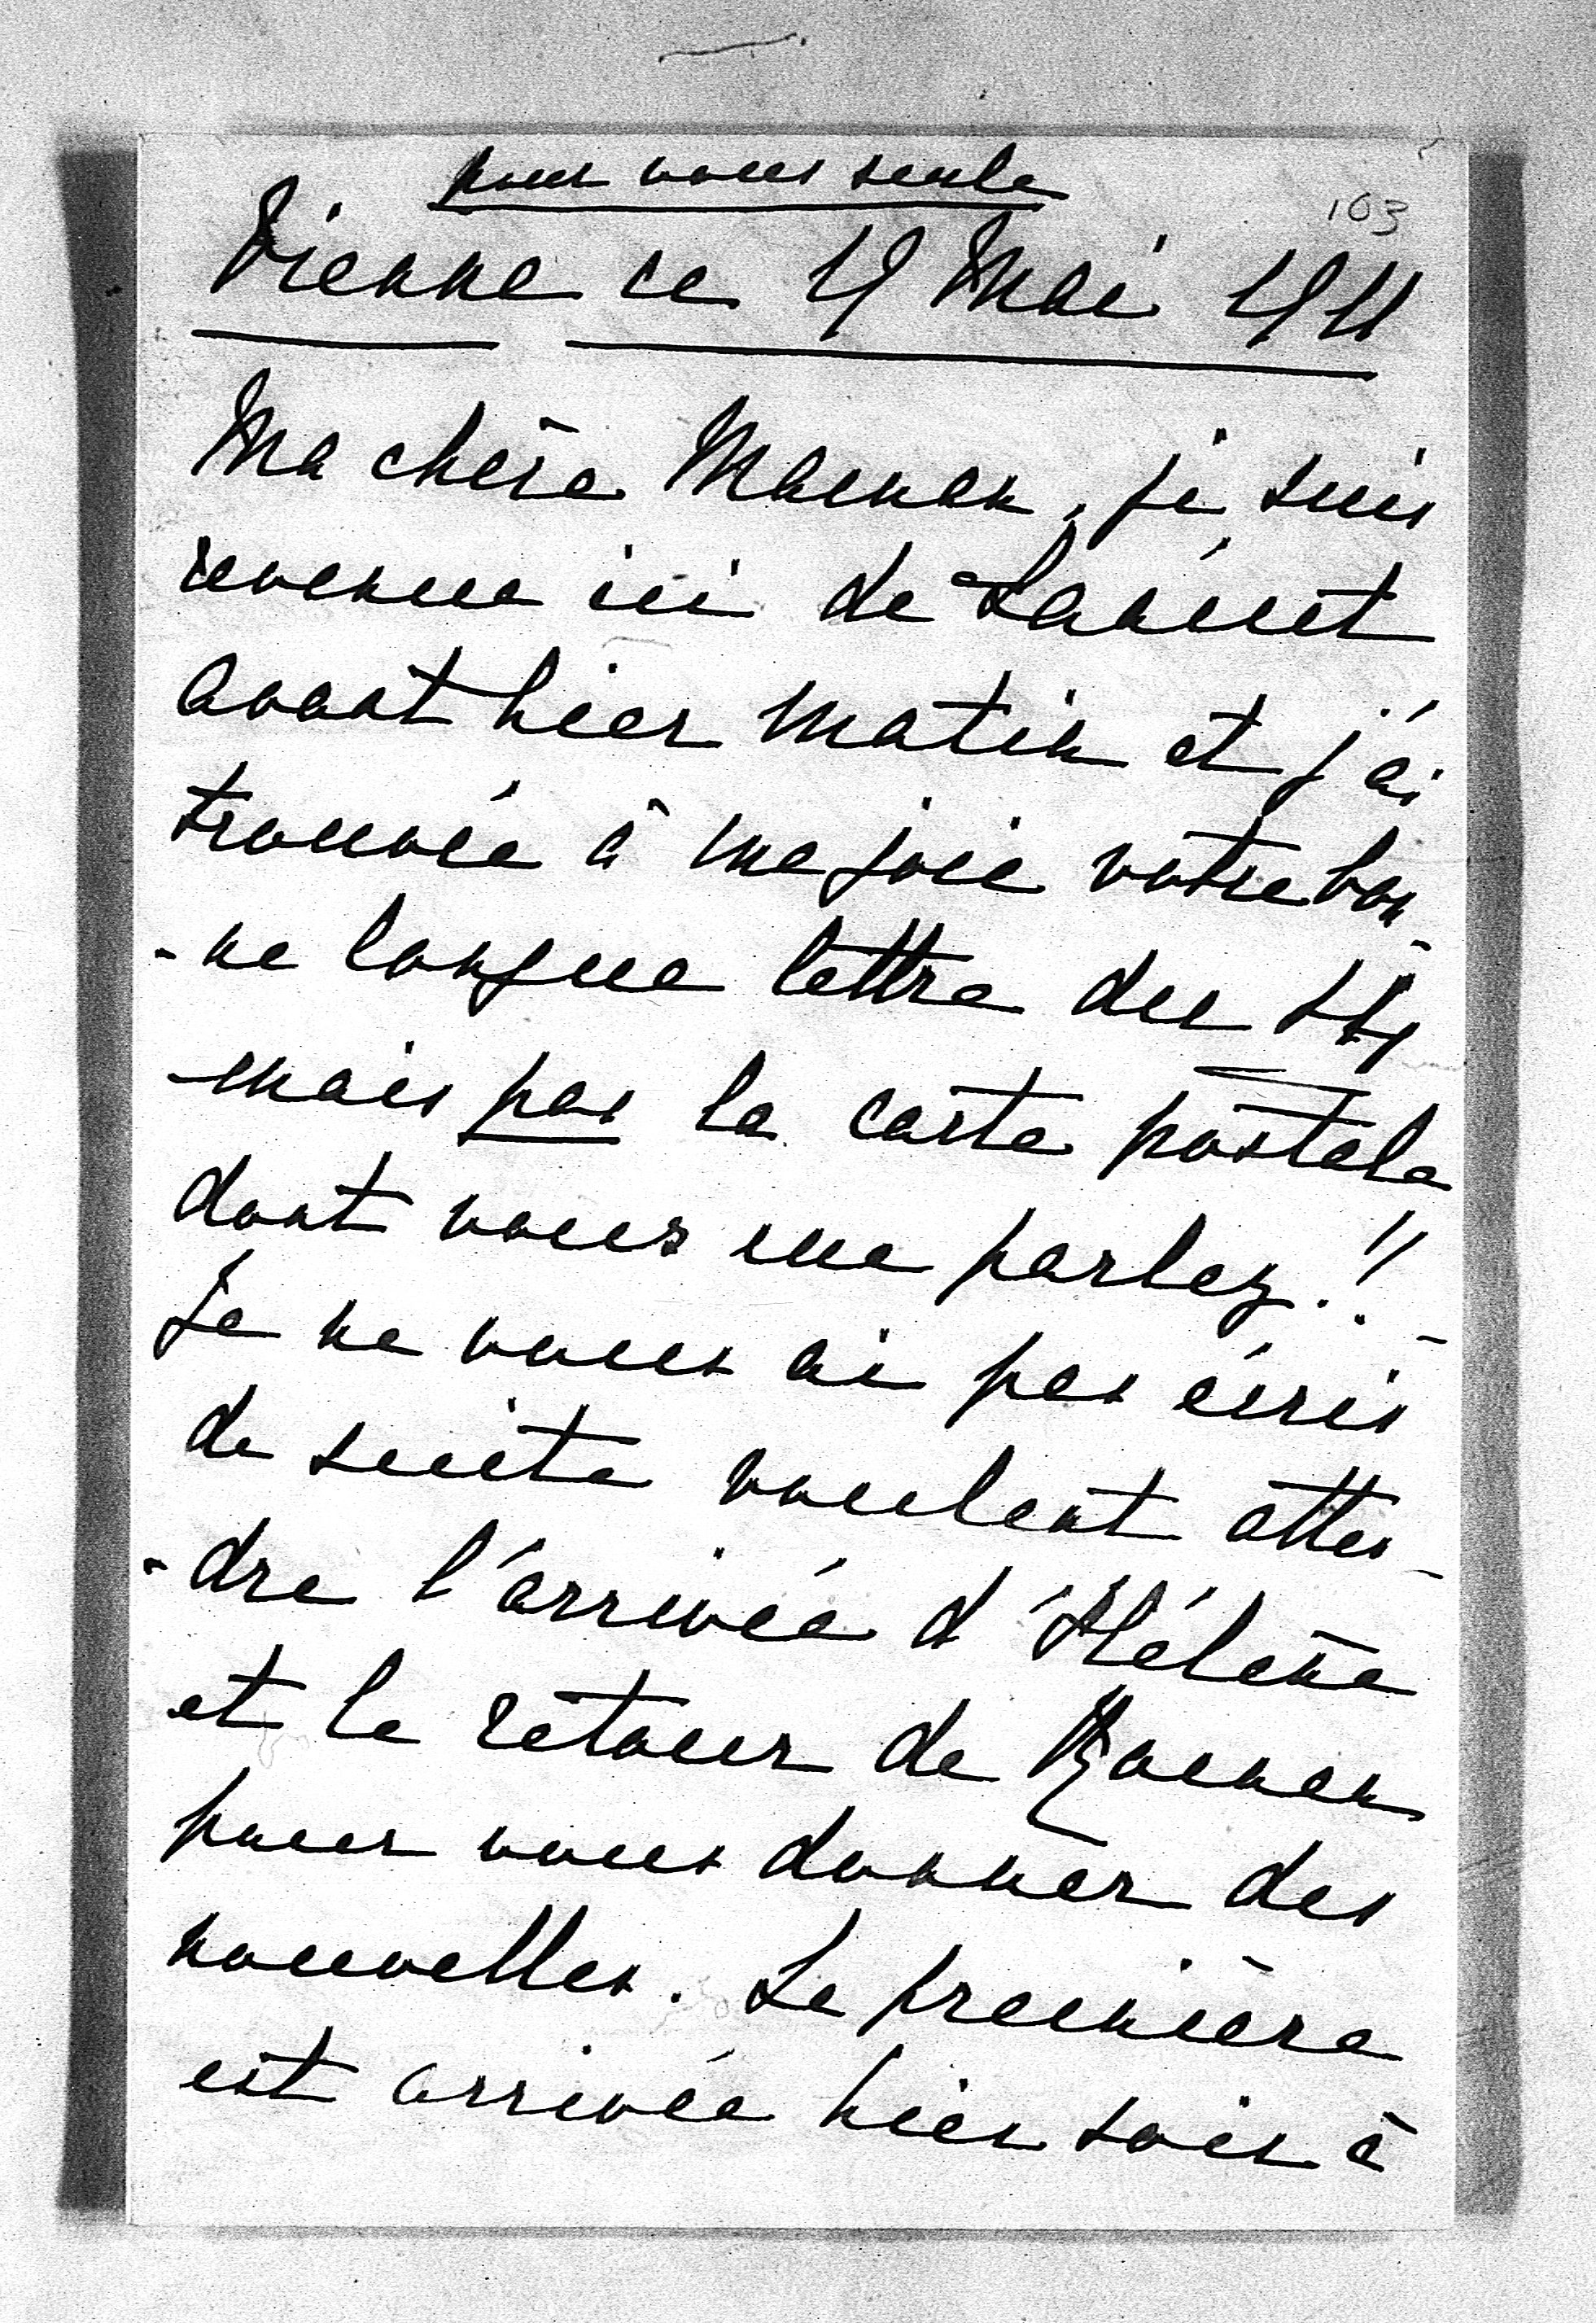 pour vous seule
103
Vienne ce 19 Mai 1911
Ma chère Maman, je suis
revenue ici de Lancut
avant hier matin et j'ai
trouvée à ma joie votre bon
-ne longue lettre du 14
mais pas la carte postale
dont vous me parlez!!
Je ne vous ai pas écris
de suite voulant atten-
-dre l'arrivée d'Hélène
et le retour de Roman
pour vous donner des
nouvelles. La première
est arrivée hier soir à